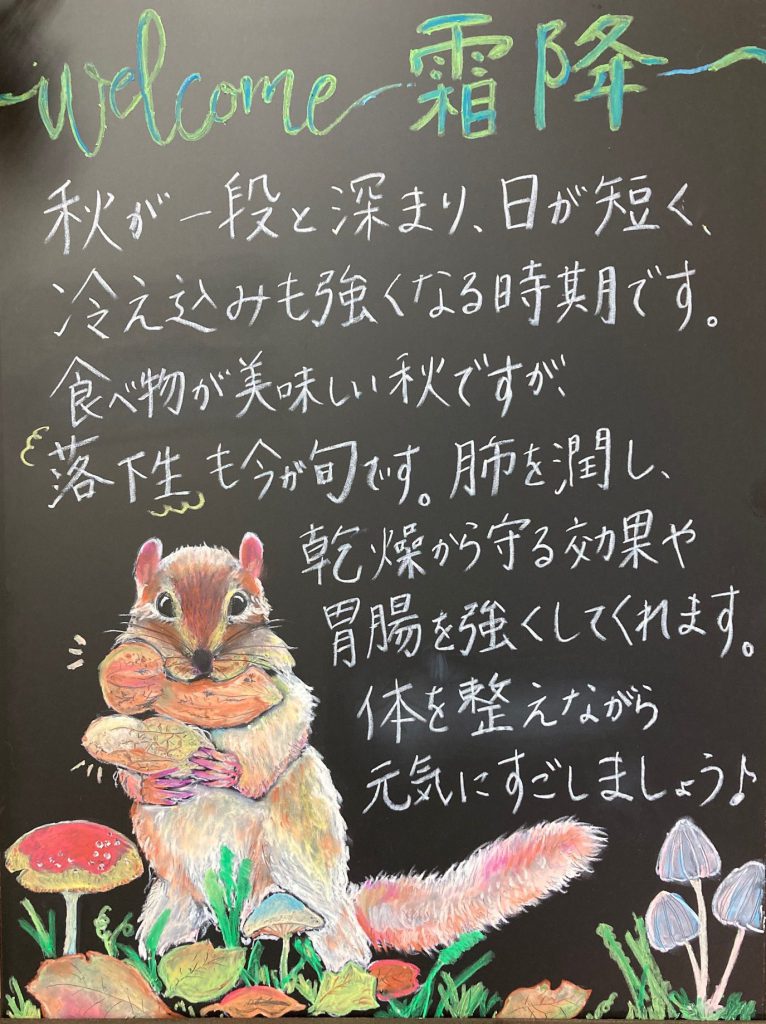 Welcome 霜降
秋が一段と深まり、日が短く、
冷え込みも強くなる時期です。
食べ物が美味しい秋ですが、
落下生も今が旬です。肺を潤し、
乾燥から守る効果や
胃腸を強くしてくれます。
体を整えながら
元気にすごしましょう♪